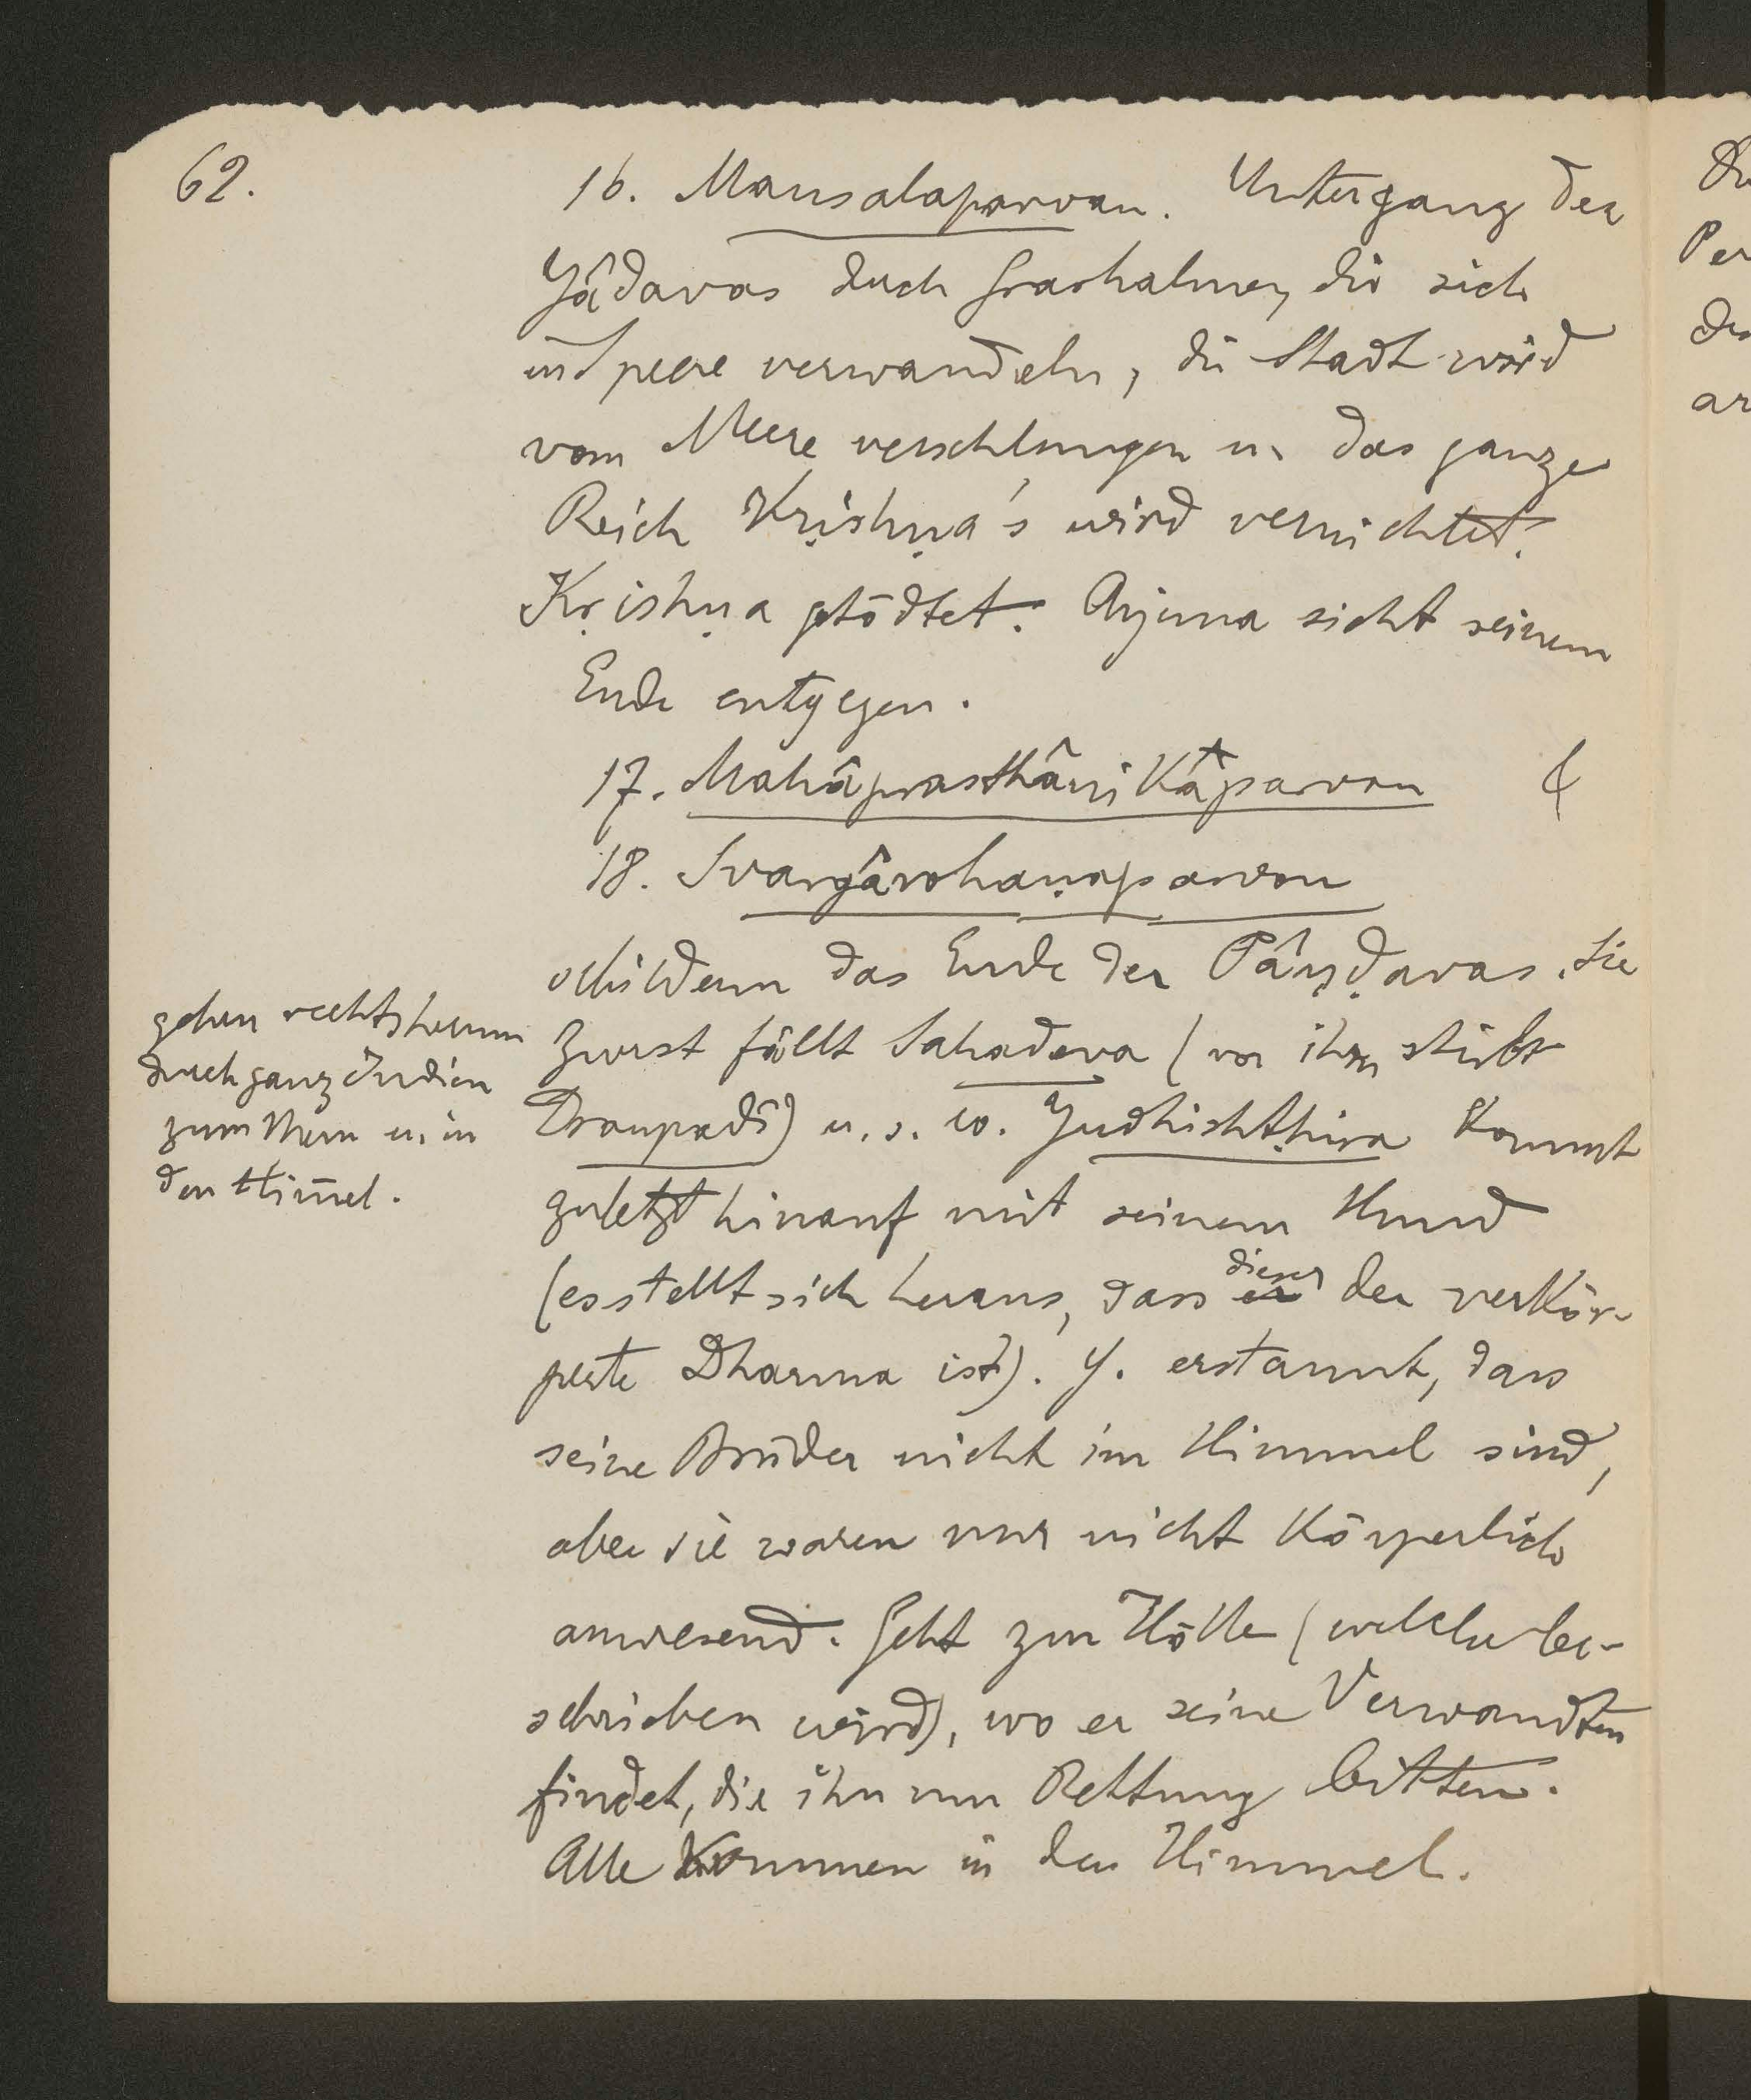 62.
16. Mausalaparvan. Untergang der
Yâdavas durch Grashalme, die sich
in Speere verwandeln, die Stadt wird
vom Meere verschlungen u. das ganze
Reich Kṛishṇa's wird vernichtet.
Kṛishṇa getödtet. Arjuna sieht seinem
Ende entgegen.
17. Mahâprasthânikaparvan &
18. Svargârohaṇaparvan
schildern das Ende der Pâṇḍavas. Sie
gehen rechtsherum
durch ganz Indien
zum Meru u. in
den Him̄el.
Zuerst fällt Sahadeva (vor ihm stirbt
Draupadî) u. s. w. Yudhishṭhira kommt
zuletzt hinauf mit seinem Hund
(es stellt sich heraus, dass er dieser der verkör-
perte Dharma ist). Y. erstaunt, dass
seine Brüder nicht im Himmel sind,
aber sie waren nur nicht körperlich
anwesend. Geht zur Hölle (welche be-
schrieben wird), wo er seine Verwandten
findet, die ihn um Rettung bitten.
Alle kommen in den Himmel.
Per
ar